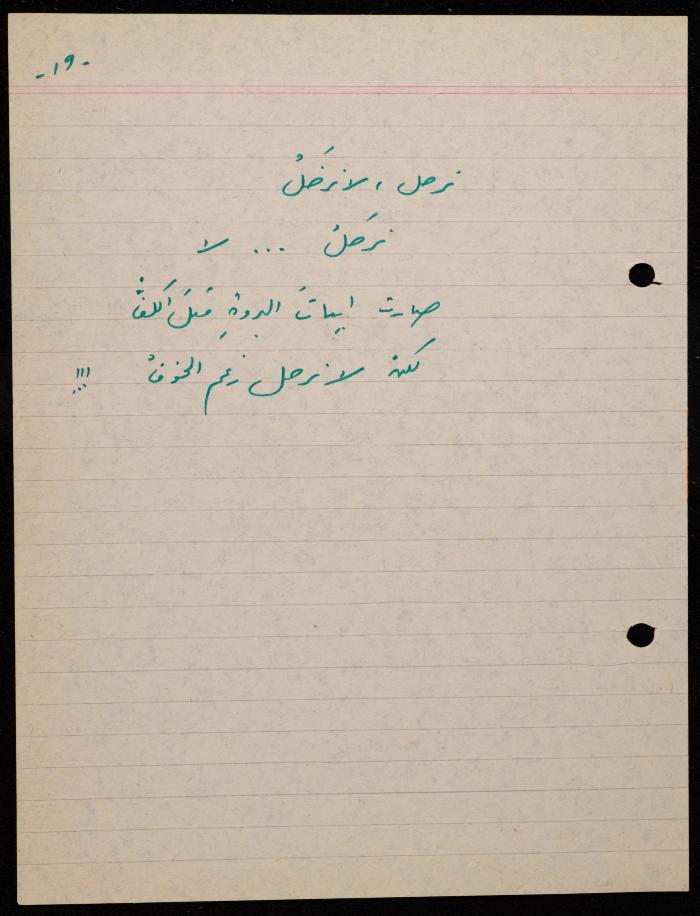 -١٩-
نرحل ، لا نرحَلُ
نرحَلُ ... لا
صارت ابياتُ البدوِ مثلَ الكفِّ
لكن لا نرحل رغم الخوف !!!